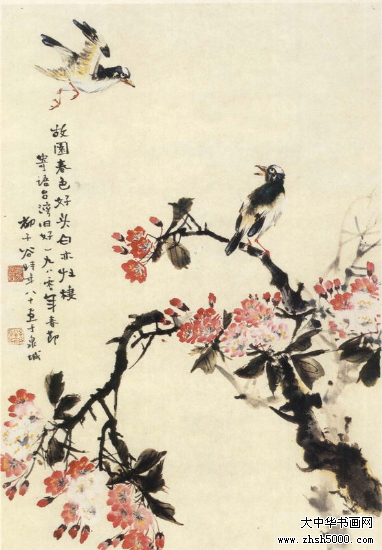 故園春色好头白亦归棲
寄语台湾旧好一九八〇年春节
柳子谷時年八十画于泉城
大中华书画网
www.zhsh5000.com